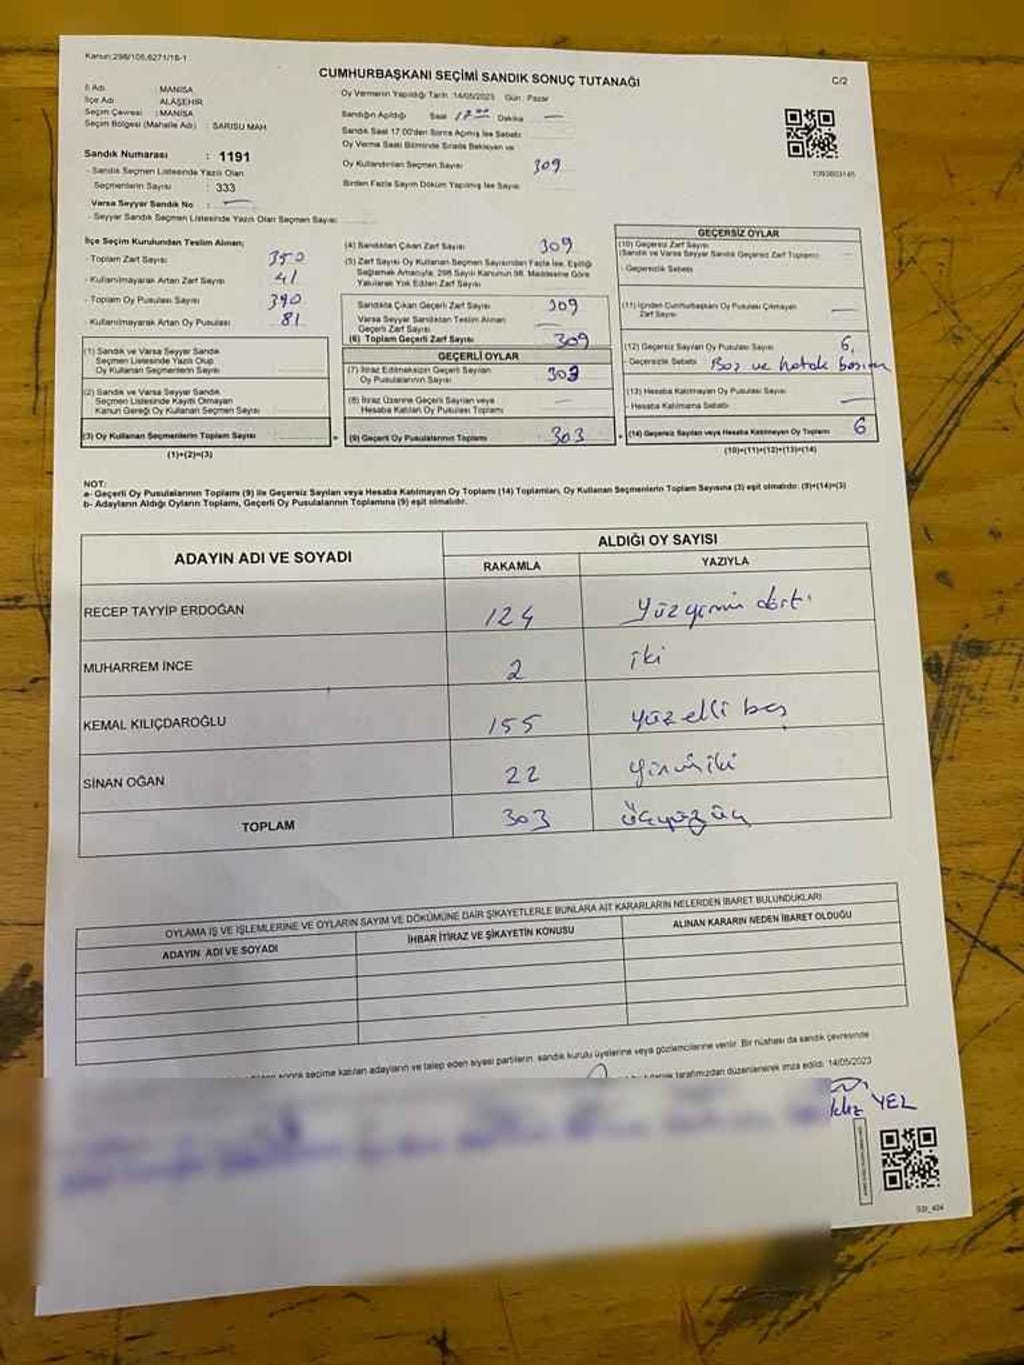 Kanun:298/106,6271/18-1
CUMHURBAŞKANI SEÇİMİ SANDIK SONUÇ TUTANAĞI
C/2
İl Adı : MANİSA
İlçe Adı : ALAŞEHİR
Seçim Çevresi : MANİSA
Seçim Bölgesi (Mahalle Adı) : SARISU MAH
Sandık Numarası : 1191
- Sandık Seçmen Listesinde Yazılı Olan
Seçmenlerin Sayısı : 333
Varsa Seyyar Sandık No : —
- Seyyar Sandık Seçmen Listesinde Yazılı Olan Seçmen Sayısı
Oy Vermenin Yapıldığı Tarih: 14/05/2023 Gün : Pazar
Sandığın Açıldığı Saat 17.00 Dakika —
Sandık Saat 17.00'den Sonra Açılmış İse Sebebi
Oy Verme Saati Bitiminde Sırada Bekleyen ve
Oy Kullandırılan Seçmen Sayısı 309
Birden Fazla Sayım Döküm Yapılmış İse Sayısı
1093803145
İlçe Seçim Kurulundan Teslim Alınan;
- Toplam Zarf Sayısı 350
- Kullanılmayarak Artan Zarf Sayısı 41
- Toplam Oy Pusulası Sayısı 390
- Kullanılmayarak Artan Oy Pusulası 81
(1) Sandık ve Varsa Seyyar Sandık
Seçmen Listesinde Yazılı Olup
Oy Kullanan Seçmenlerin Sayısı
(2) Sandık ve Varsa Seyyar Sandık
Seçmen Listesinde Kayıtlı Olmayan
Kanun Gereği Oy Kullanan Seçmen Sayısı
(3) Oy Kullanan Seçmenlerin Toplam Sayısı
(1)+(2)=(3)
(4) Sandıktan Çıkan Zarf Sayısı 309
(5) Zarf Sayısı Oy Kullanan Seçmen Sayısından Fazla İse, Eşitliği
Sağlamak Amacıyla, 298 Sayılı Kanunun 98. Maddesine Göre
Yakılarak Yok Edilen Zarf Sayısı
Sandıkta Çıkan Geçerli Zarf Sayısı 309
Varsa Seyyar Sandıktan Teslim Alınan
Geçerli Zarf Sayısı —
(6) Toplam Geçerli Zarf Sayısı 309
GEÇERLİ OYLAR
(7) İtiraz Edilmeksizin Geçerli Sayılan
Oy Pusulalarının Sayısı 303
(8) İtiraz Üzerine Geçerli Sayılan veya
Hesaba Katılan Oy Pusulası Toplamı —
(9) Geçerli Oy Pusulalarının Toplamı 303
GEÇERSİZ OYLAR
(10) Geçersiz Zarf Sayısı
(Sandık ve Varsa Seyyar Sandık Geçersiz Zarf Toplamı)
- Geçersizlik Sebebi
(11) İçinden Cumhurbaşkanı Oy Pusulası Çıkmayan
Zarf Sayısı —
(12) Geçersiz Sayılan Oy Pusula Sayısı 6,
- Geçersizlik Sebebi Boş ve hatalı basım
(13) Hesaba Katılmayan Oy Pusulası Sayısı
- Hesaba Katılmama Sebebi —
(14) Geçersiz Sayılan veya Hesaba Katılmayan Oy Toplamı 6
(10)+(11)+(12)+(13)=(14)
NOT:
a- Geçerli Oy Pusulalarının Toplamı (9) ile Geçersiz Sayılan veya Hesaba Katılmayan Oy Toplamı (14) Toplamları, Oy Kullanan Seçmenlerin Toplam Sayısına (3) eşit olmalıdır: (9)+(14)=(3)
b- Adayların Aldığı Oyların Toplamı, Geçerli Oy Pusulalarının Toplamına (9) eşit olmalıdır.
ADAYIN ADI VE SOYADI
ALDIĞI OY SAYISI
RAKAMLA YAZIYLA
RECEP TAYYİP ERDOĞAN 124 Yüzyirmi dört
MUHARREM İNCE 2 iki
KEMAL KILIÇDAROĞLU 155 yüzelli beş
SİNAN OĞAN 22 yirmiiki
TOPLAM 303 üçyüz üç
OYLAMA İŞ VE İŞLEMLERİNE VE OYLARIN SAYIM VE DÖKÜMÜNE DAİR ŞİKAYETLERLE BUNLARA AİT KARARLARIN NELERDEN İBARET BULUNDUKLARI
ADAYIN ADI VE SOYADI İHBAR İTİRAZ VE ŞİKAYETİN KONUSU ALINAN KARARIN NEDEN İBARET OLDUĞU
sonra seçime katılan adayların ve talep eden siyasi partilerin, sandık kurulu üyelerine veya gözlemcilerine verilir. Bir nüshası da sandık çevresinde
tarafımızdan düzenlenerek imza edildi. 14/05/2023
YEL